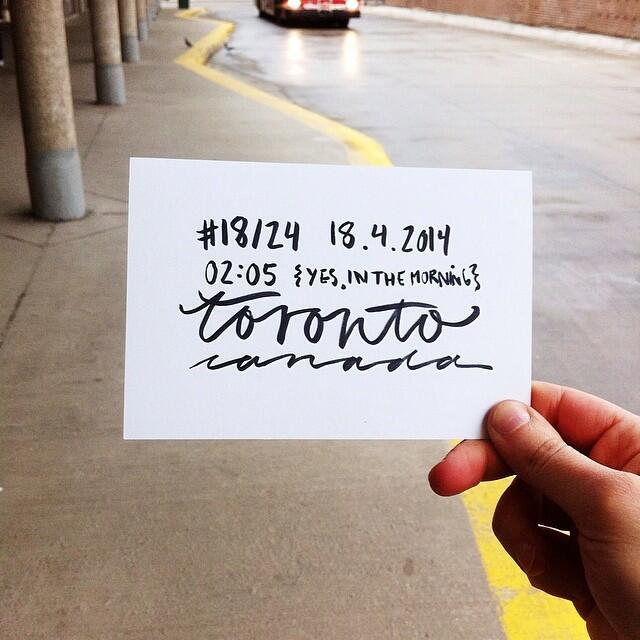 #18/24 18.4.2014
02:05 {YES, IN THE MORNING}
toronto
canada